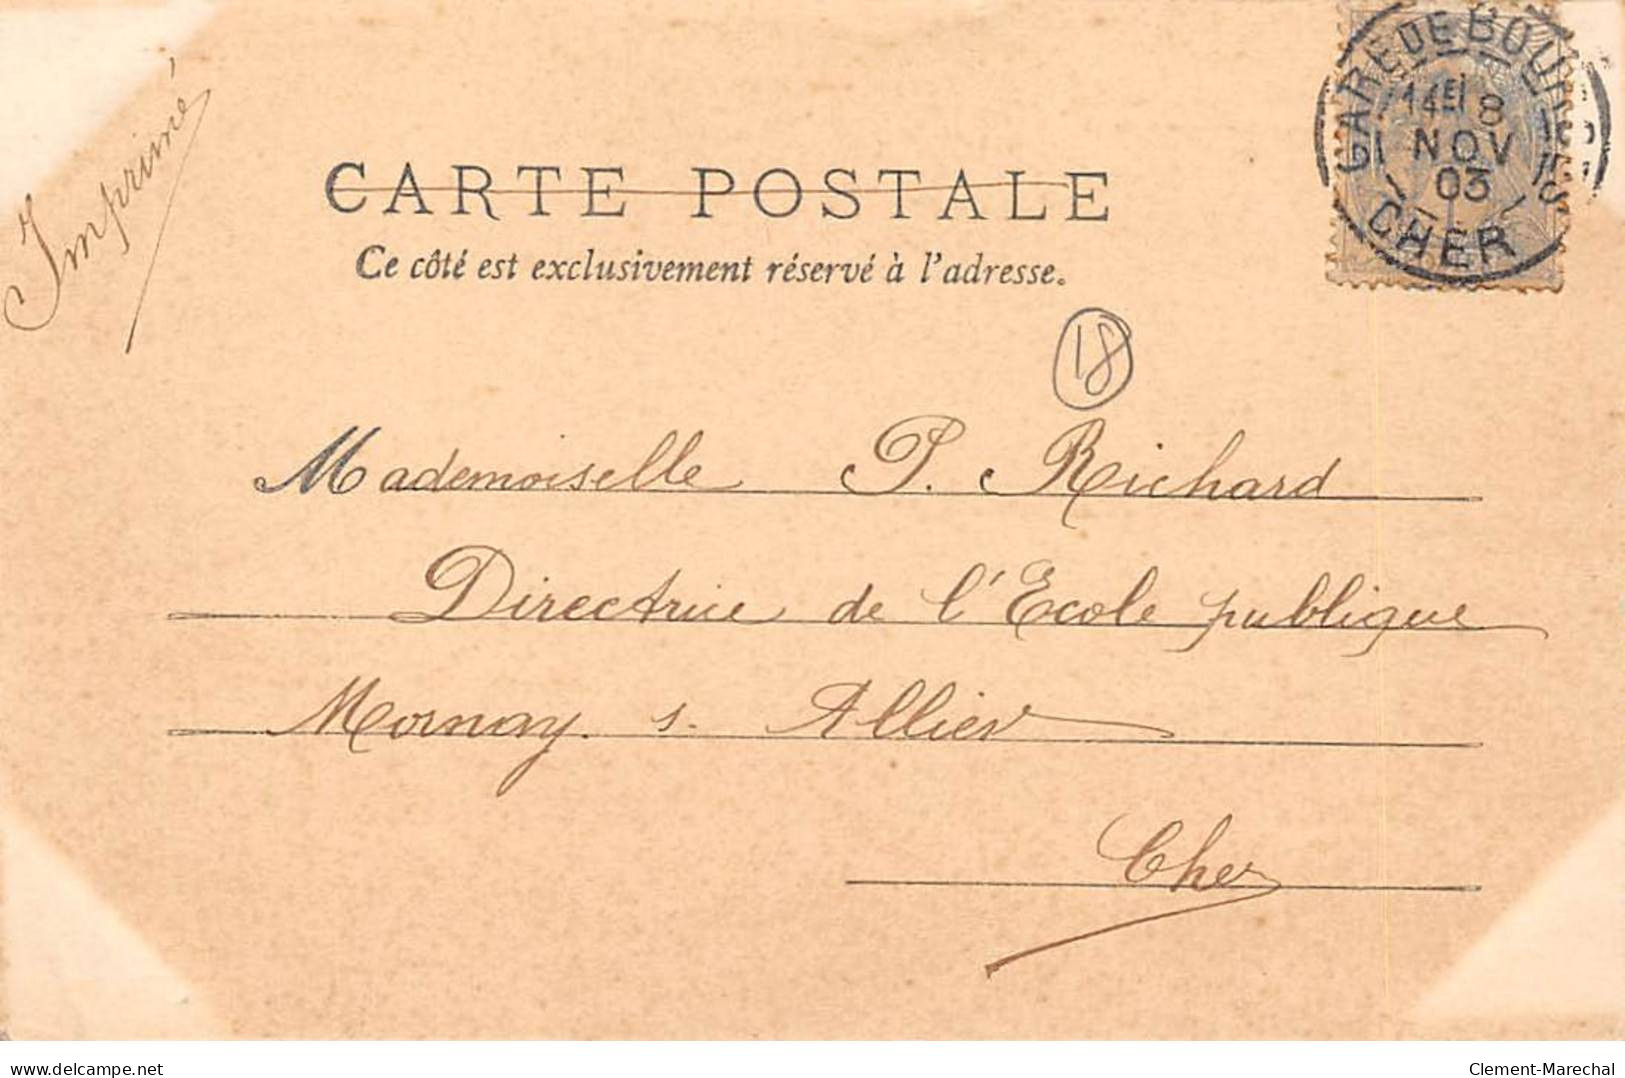 Imprimé
GARE DE BOURGES
14E/ 8
NOV
03
CHER
CARTE POSTALE
Ce côté est exclusivement réservé à l'adresse.
18
Mademoiselle P. Richard
Directrice de l'Ecole publique
Mornay s. Allier
Cher
delcampe.net
Clement-Marechal